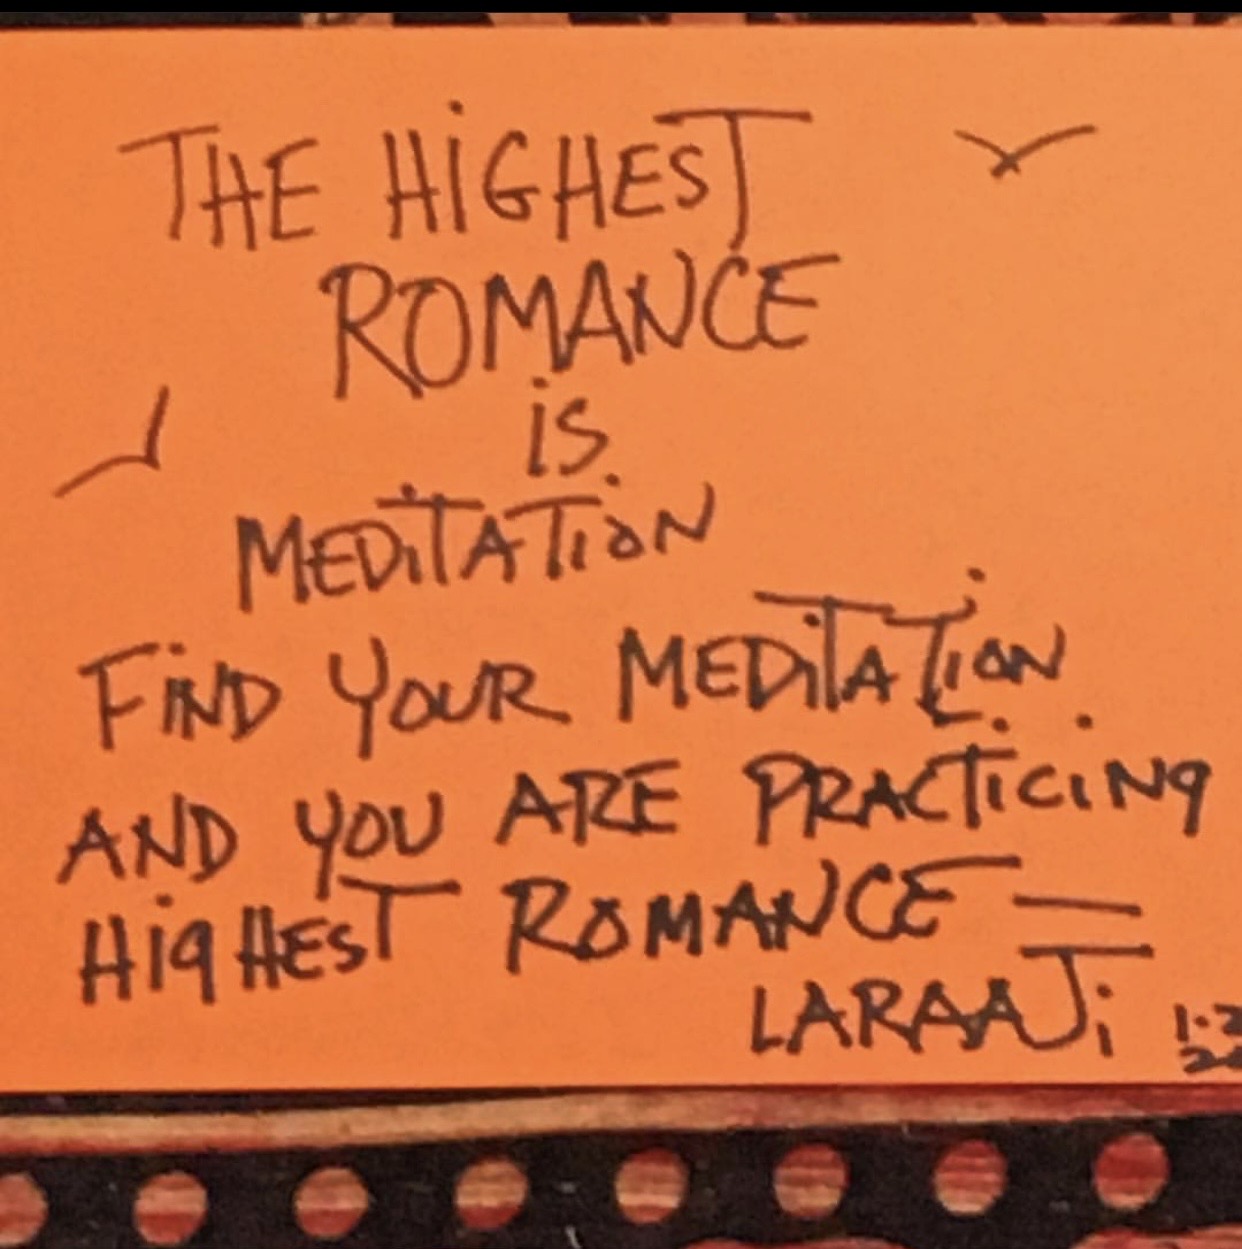 THE HiGHEST
ROMANCE
is
MEDiTATiON
FiND YOUR MEDiTATiON
AND YOU ARE PRACTiCiNg
HigHEST ROMANCE
LARAAJi